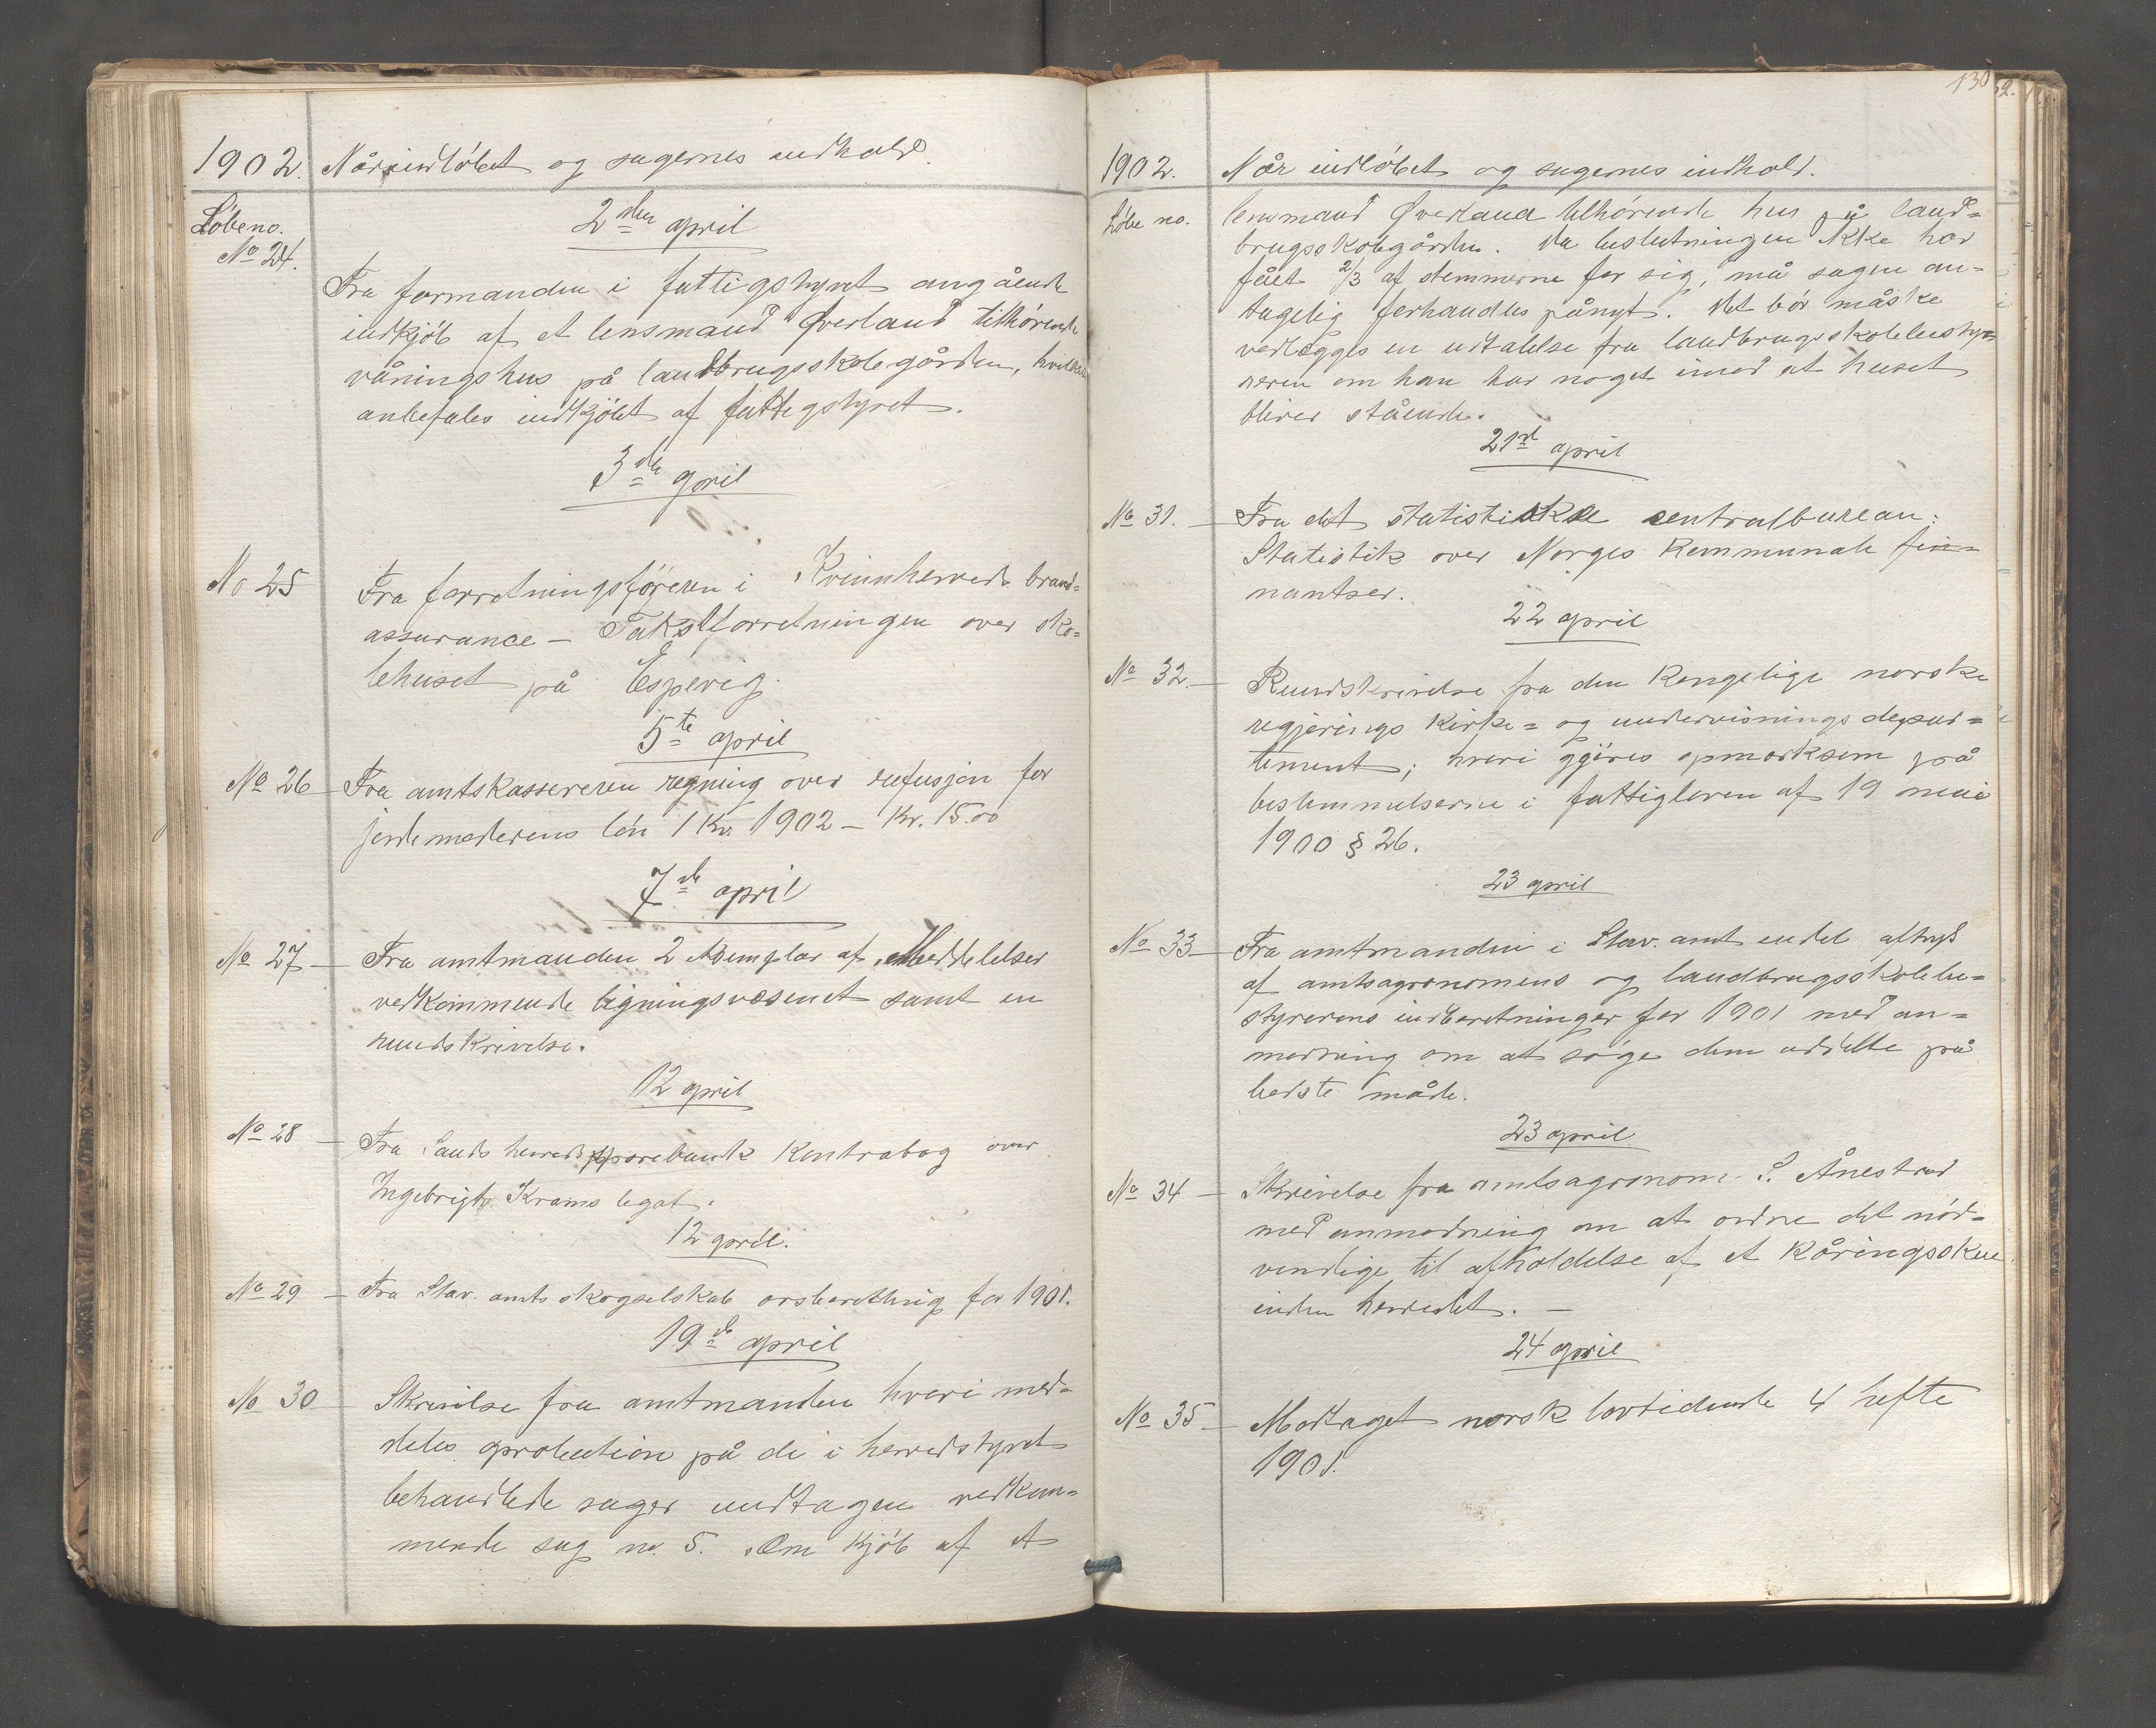 1902. Når indløbet og sagernes indhold.
Løbeno.
2den april
No 24.
Fra formanden i fattigstyret angående
indkjøb af et lensmand Øverland tilhørende
våningshus på landbrugsskolegården, hvilket
anbefales indkjøbt af fattigstyret.
3de april
No 25
Fra forretningsføreren i Kvinnherreds brand=
assurance – Takstforretningen over sko=
lehuset på Espevig.
5te april
No 26 Fra amtskassereren regning over refusjon for
jordemoderens løn 1 Kv. 1902 – Kr. 15.00
7de april
No 27 – Fra amtmanden 2 exemplar af Meddelelser
vedkommende ligningsvæsenet samt en
rundskrivelse.
12 april
No 28 – Fra Sauds herreds sparebank Kontrabog over
Ingebrigt Krams legat.
12 april.
No 29 – Fra Stav. amts skogselskab årsberetning for 1901.
19de april
No 30 Skrivelse fra amtmanden hvori med=
deles aprobation på de i herredstyret
behandlede sager undtagen vedkom=
mende sag no. 5. Om kjøb af et
130
1902. Når indløbet og sagernes indhold.
Løbe no. lensmand Øverland tilhørende hus på land=
brugsskolegården. Da beslutningen ikke har
fået 2/3 af stemmerne for sig, må sagen an=
tagelig forhandles pånyt. Det bør måske
vedlægges en udtalelse fra landbrugsskolebesty=
reren om han har noget imod at huset
bliver stående.
21de april
No 31. – Fra det statistiske centralbureau:
Statistik over Norges Kommunale fin=
nantser.
22 april
No 32. – Rundskrivelse fra den Kongelige norske
regjerings Kirke= og undervisnings depar=
tement; hvori gjøres opmærksom på
bestemmelserne i fattigloven af 19 mai
1900 § 26.
23 april
No 33 – Fra amtmanden i Stav. amt endel aftryk
af amtsagronomens og landbrugsskolebe=
styrerens indberetninger for 1901 med an=
modning om at søge dem uddelte på
bedste måde.
23 april
No 34 – Skrivelse fra amtsagronom S. Ånestad
med anmodning om at ordne det nød=
vendige til afholdelse af et Kåringsskue
inden herredet. –
24 april
No 35 – Modtaget norsk lovtidende 4 hefte
1901.